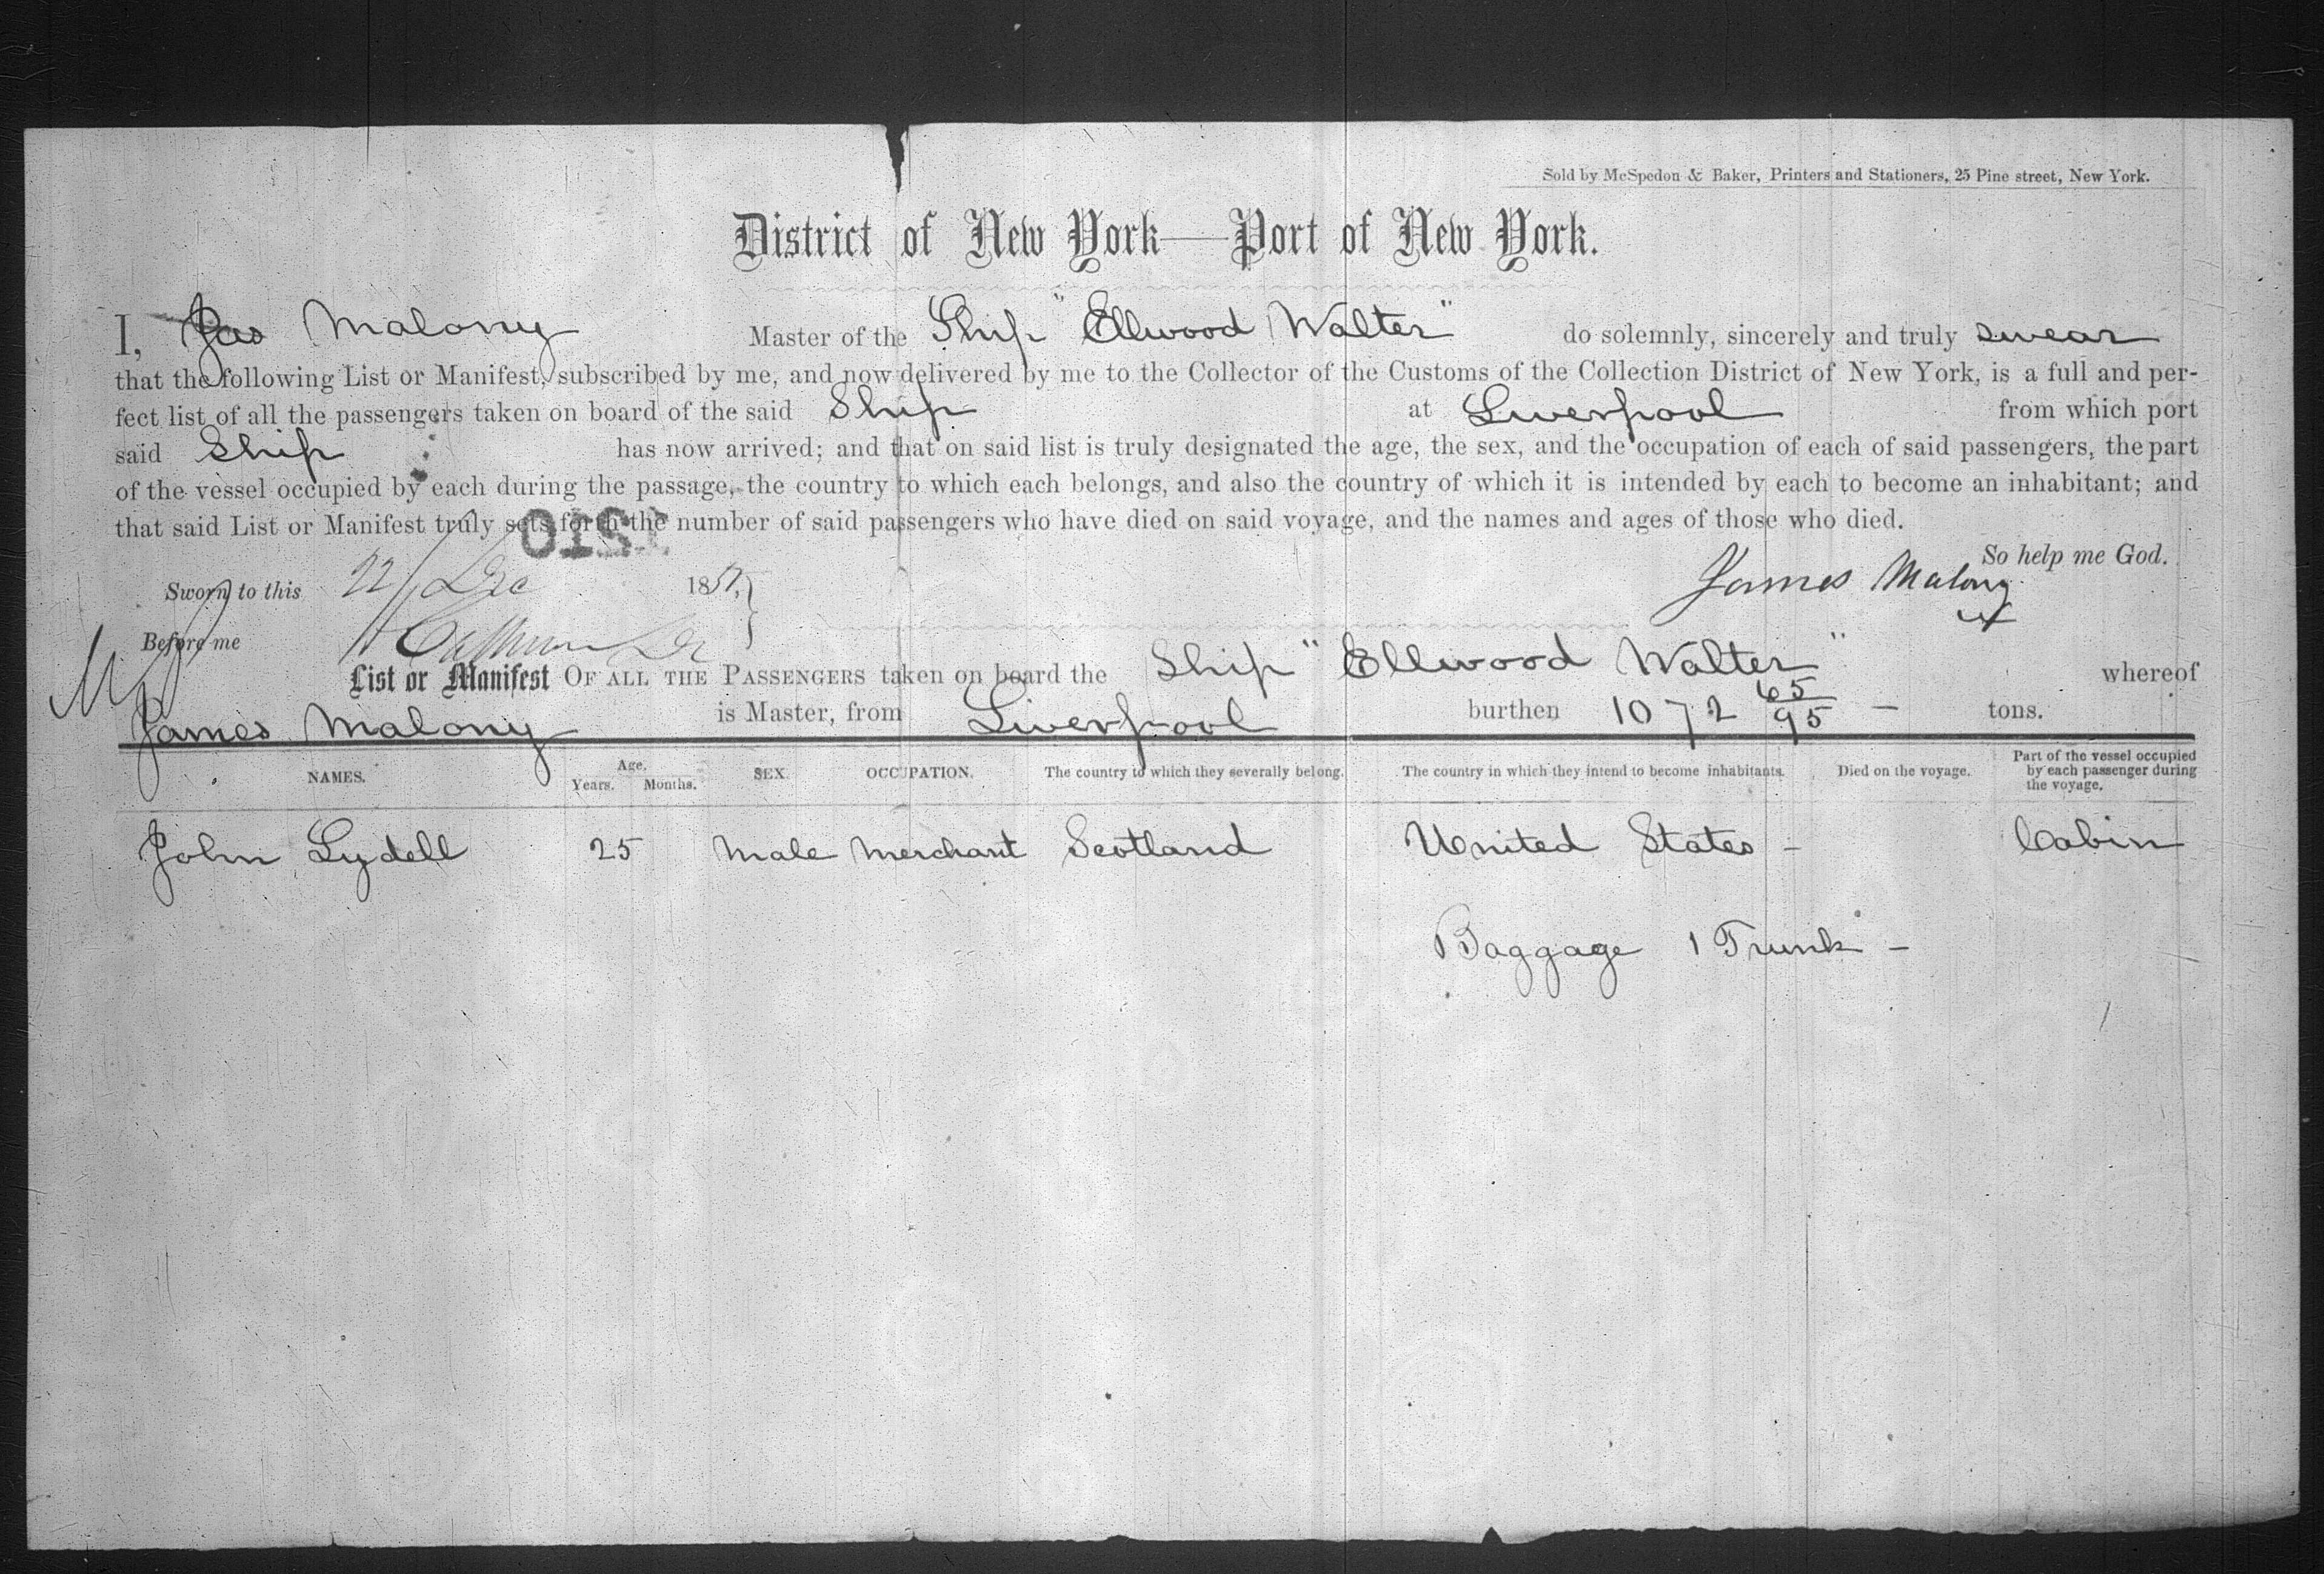 Sold by McSpedon & Baker, Printers and Stationers, 25 Pine street, New York.
District of New York—Port of New York.
I, Jas Malony Master of the Ship "Ellwood Walter" do solemnly, sincerely and truly swear
that the following List or Manifest, subscribed by me, and now delivered by me to the Collector of the Customs of the Collection District of New York, is a full and per-
fect list of all the passengers taken on board of the said Ship at Liverpool from which port
said Ship has now arrived; and that on said list is truly designated the age, the sex, and the occupation of each of said passengers, the part
of the vessel occupied by each during the passage, the country to which each belongs, and also the country of which it is intended by each to become an inhabitant; and
that said List or Manifest truly sets forth the number of said passengers who have died on said voyage, and the names and ages of those who died.
So help me God.
Sworn to this 22 Dec 185 James Malony
Before me
List or Manifest OF ALL THE PASSENGERS taken on board the Ship "Ellwood Walter" whereof
James Malony is Master, from Liverpool burthen 1072 65/95 - tons.
NAMES. Age. Years. Months. SEX. OCCUPATION. The country to which they severally belong. The country in which they intend to become inhabitants. Died on the voyage. Part of the vessel occupied by each passenger during the voyage.
John Lydell 25 Male Merchant Scotland United States - Cabin
Baggage 1 Trunk -